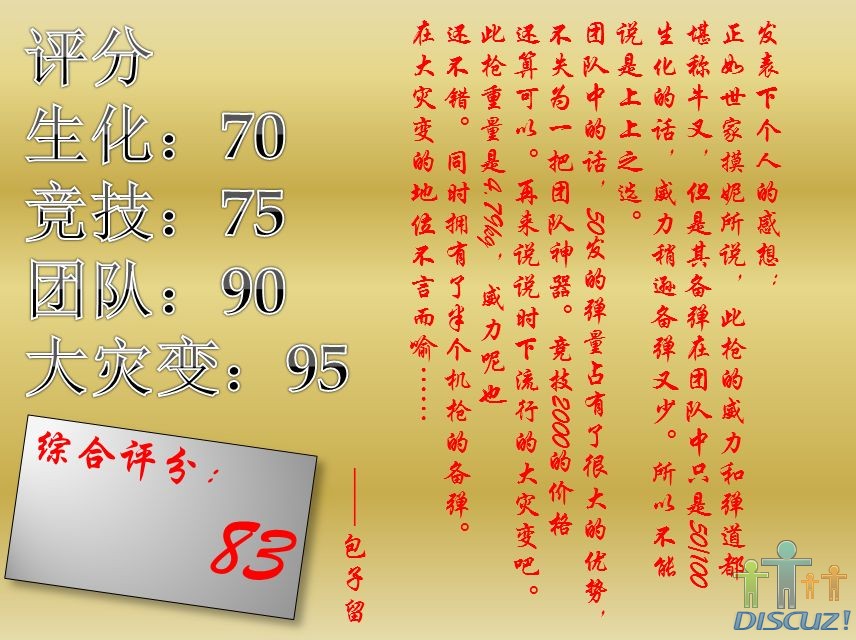 评分
生化：70
竞技：75
团队：90
大灾变：95
综合评分：
83
发表下个人的感想：
正如世家摸妮所说，此枪的威力和弹道都
堪称牛叉，但是其备弹在团队中只是50/100
生化的话，威力稍逊备弹又少。所以不能
说是上上之选。
团队中的话，50发的弹量占有了很大的优势，
不失为一把团队神器。竞技2000的价格
还算可以。再来说说时下流行的大灾变吧。
此枪重量是4.79kg，威力呢也
还不错。同时拥有了半个机枪的备弹。
在大灾变的地位不言而喻……
——包子留
DISCUZ!